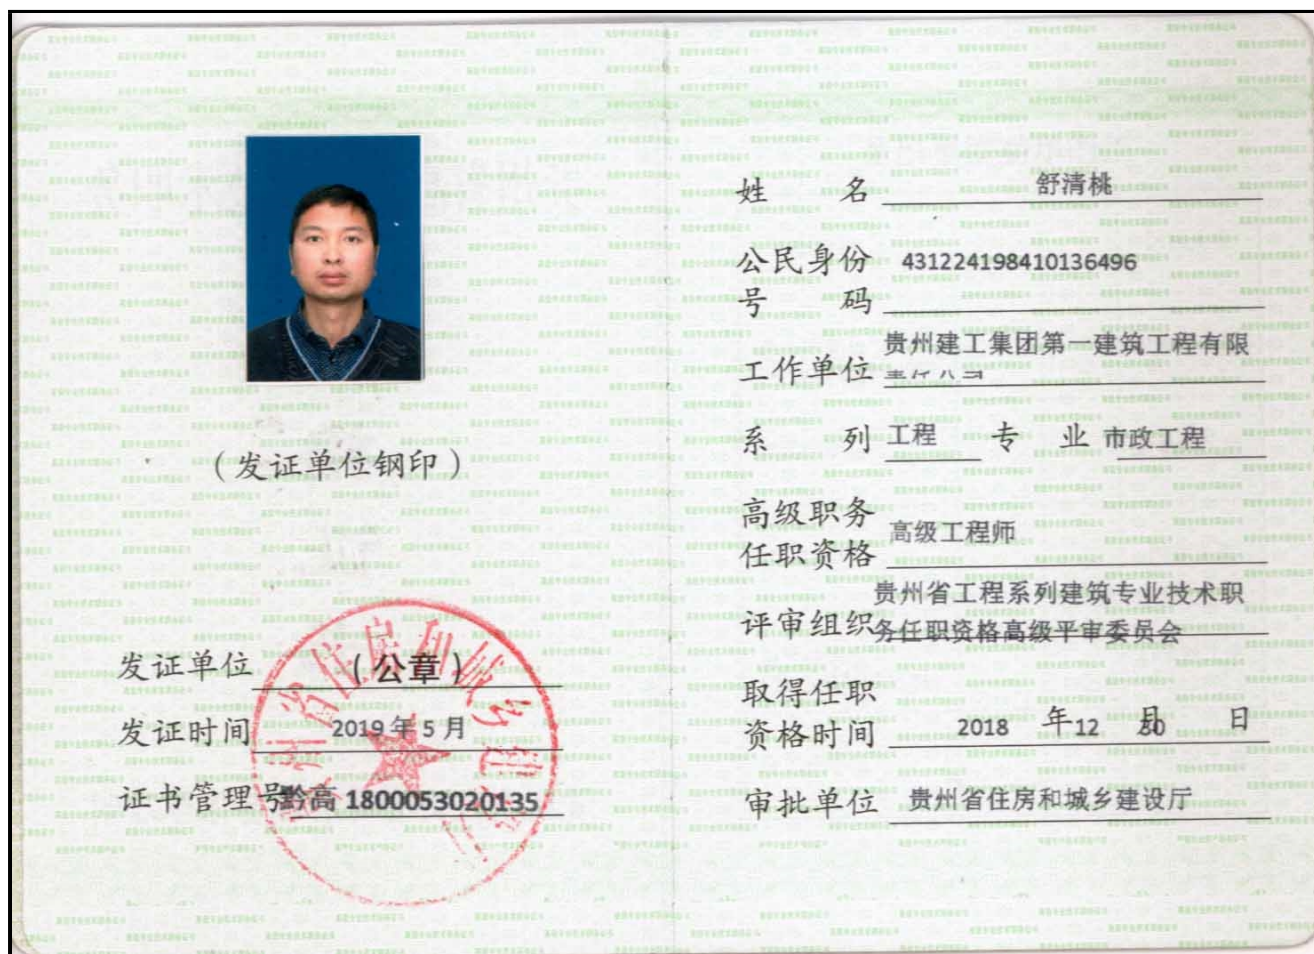 (发证单位钢印)
发证单位 (公章)
发证时间 2019 年 5 月
证书管理号黔高 1800053020135
姓 名 舒清桃
公民身份 431224198410136496
号 码
工作单位 贵州建工集团第一建筑工程有限
责任公司
系 列 工程 专 业 市政工程
高级职务
任职资格 高级工程师
评审组织 贵州省工程系列建筑专业技术职
务任职资格高级平审委员会
取得任职
资格时间 2018 年 12 月 30 日
审批单位 贵州省住房和城乡建设厅